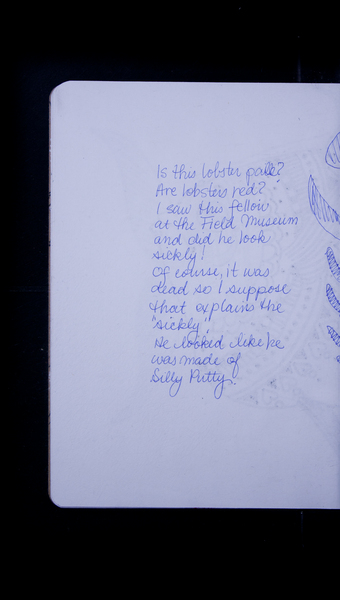 Is this lobster pale?
Are lobsters red?
I saw this fellow
at the Field Museum
and did he look
sickly!
Of course, it was
dead so I suppose
that explains the
"sickly".
He looked like he
was made of
Silly Putty.